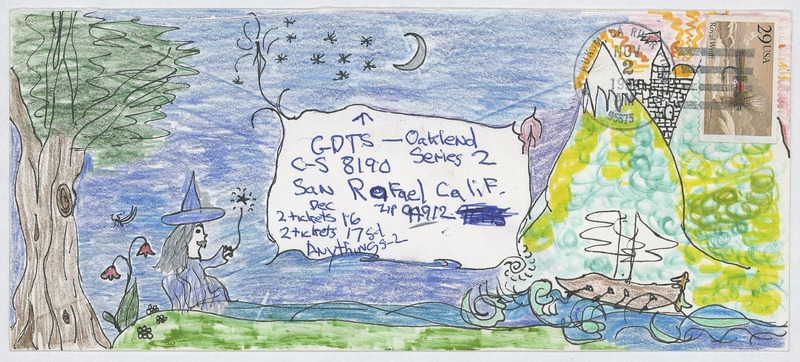 GDTS — Oakland
Series 2
C-S 8190
San Rafael Calif.
Dec zip 94912
2 tickets 16
2 tickets 17 s-1
Anything s-2
NOV
2
19
95675
29 USA